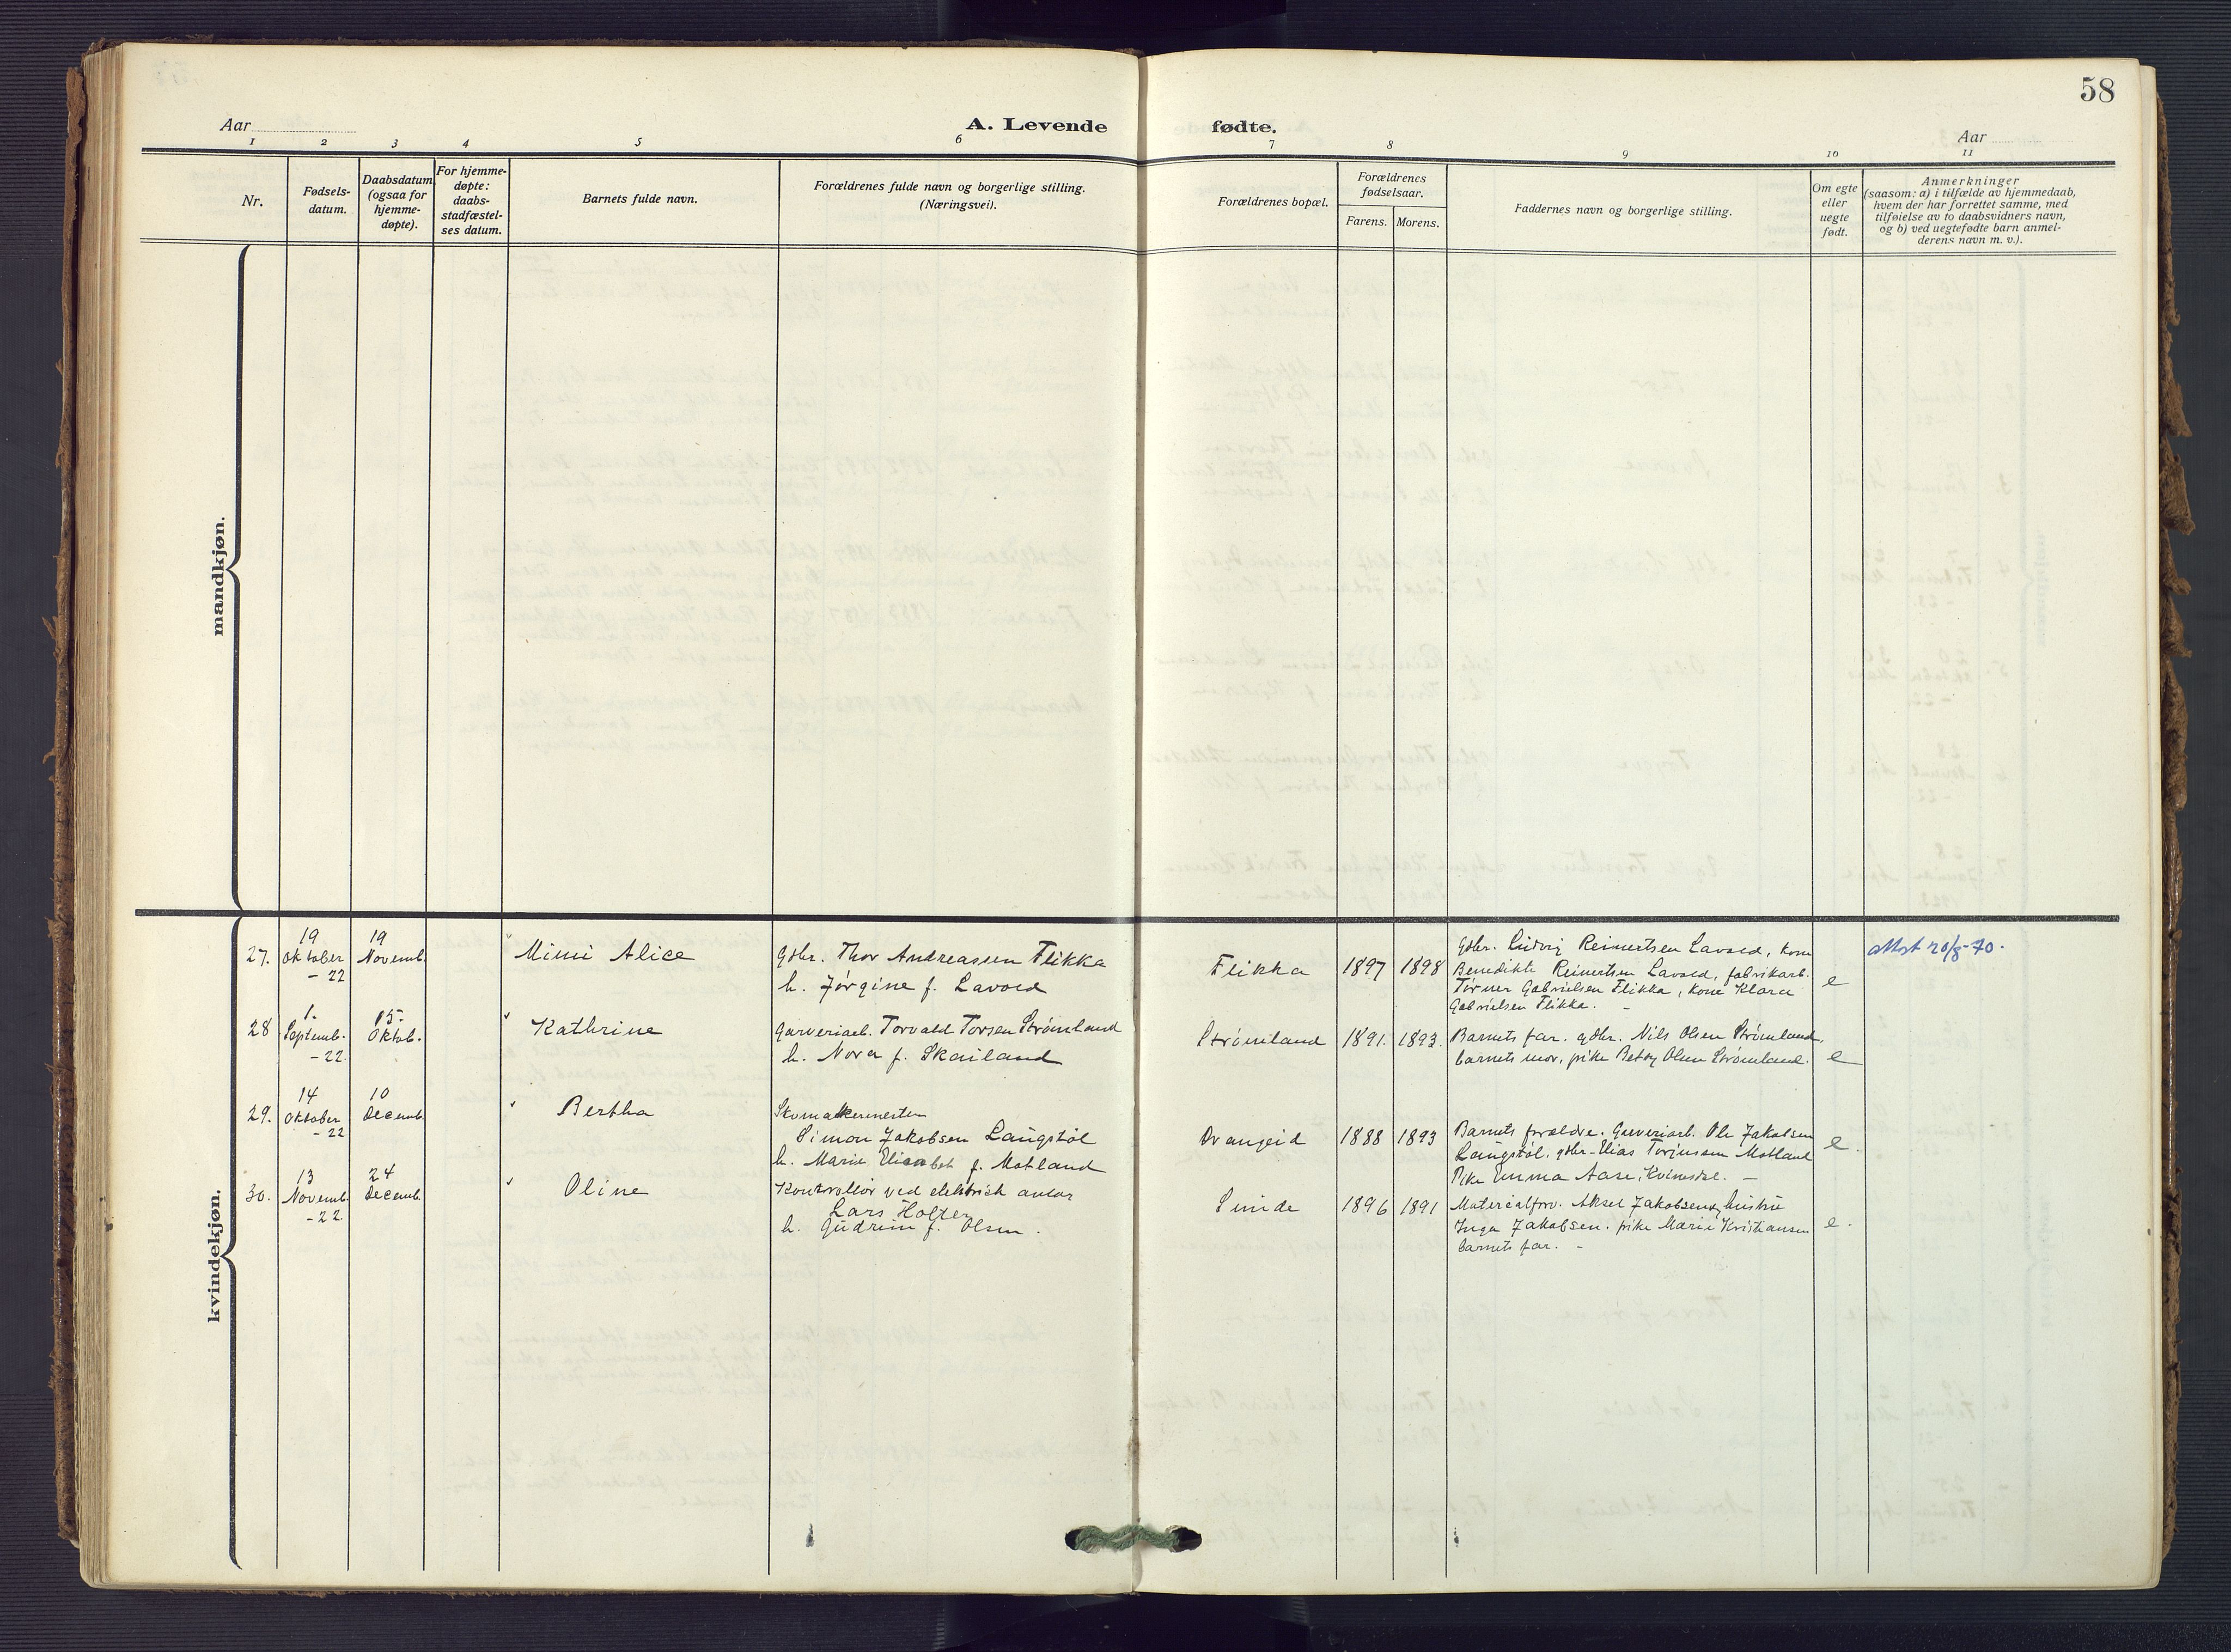 58
Aar
A. Levende fødte.
Aar
1 2 3 4 5 6 7 8 9 10 11
Nr.
Fødsels-
datum.
Daabsdatum
(ogsaa for
hjemme-
døpte).
For hjemme-
døpte:
daabs-
stadfæstel-
ses datum.
Barnets fulde navn.
Forældrenes fulde navn og borgerlige stilling.
(Næringsvei).
Forældrenes bopæl.
Forældrenes
fødselsaar.
Farens. Morens.
Faddernes navn og borgerlige stilling.
Om egte
eller
uegte
født.
Anmerkninger
(saasom: a) i tilfælde av hjemmedaab,
hvem der har forrettet samme, med
tilføielse av to daabsvidners navn,
og b) ved uegtefødte barn anmel-
derens navn m. v.).
mandkjøn.
kvindekjøn.
27.
19
Oktober
-22
19
Novemb.
Mimi Alice
Gdbr. Thor Andreassen Flikka
h. Jørgine f. Lavold
Flikka
1897
1898
Gdbr. Ludvig Reinertsen Lavold, kone
Benedikte Reinertsen Lavold, fabrikarb.
Torner Gabrielsen Flikka, kone Klara
Gabrielsen Flikka. -
e
Attest 20/8-70.
28
1.
Septemb.
-22.
15.
Oktob.
Kathrine
Garveriarb. Torvald Torsen Strømland
h. Nora f. Skailand
Strømland
1891.
1893.
Barnets far. gdbr. Nils Olsen Strømland,
barnets mor, pike Betsy Olsen Strømland.
e
29.
14
Oktober
-22
10
Decemb.
Bertha
Skomakermester
Simon Jakobsen Laugstøl
h. Marie Elisabet f. Motland
Drangeid
1888
1893
Barnets forældre. Garveriarb. Ole Jakobsen
Laugstøl, gdbr. Elias Torjussen Motland
Pike Emma Aase, Kvinesdal. -
e.
30.
13
Novemb
-22.
24
Decemb.
Oline
Kontrollør ved elektrisk anlæg
Lars Holter
h. Gudrun f. Olsen.
Sunde
1896
1891
Materialforv. Aksel Jakobsen, hustru
Inga Jakobsen. pike Marie Kristiansen
barnets far. -
e.